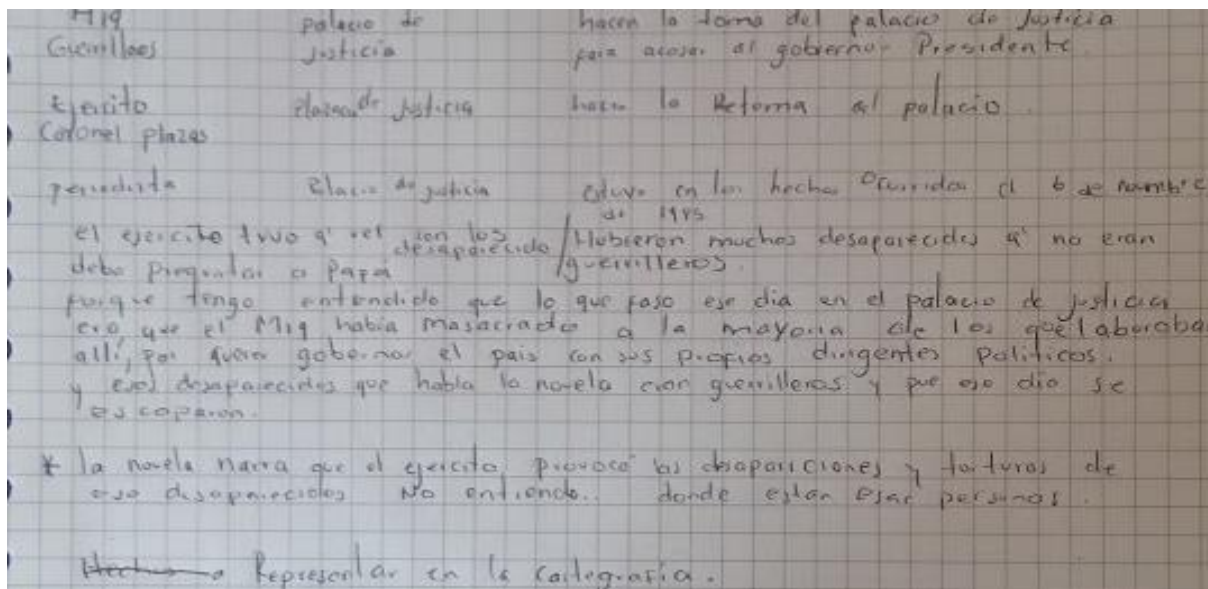 M19 palacio de hacen la toma del palacio de Justicia
Guerrilleros justicia para acosar al gobierno - Presidente
Ejercito de justicia hacen la Retoma al palacio.
Coronel plazas
periodista de justicia estuvo en los hechos Ocurridos el 6 de
de 1985
el ejercito tuvo q' ver con los desaparecido / Hubieron muchos desaparecidos q' no eran
debo preguntar a Papá / guerrilleros.
porque tengo entendido que lo que paso ese dia en el palacio de justicia
era que el M19 habia masacrado a la mayoria de los que laboraba
allí, por querer gobernar el pais con sus propios dirigentes politicos.
y esos desaparecidos que habla la novela eran guerrilleros y que ese dia se
escaparon.
* la novela narra que el ejercito provocó las desapariciones y torturas de
eso desaparecidos No entiendo.. donde estan esas personas.
Representar en la Cartografia.